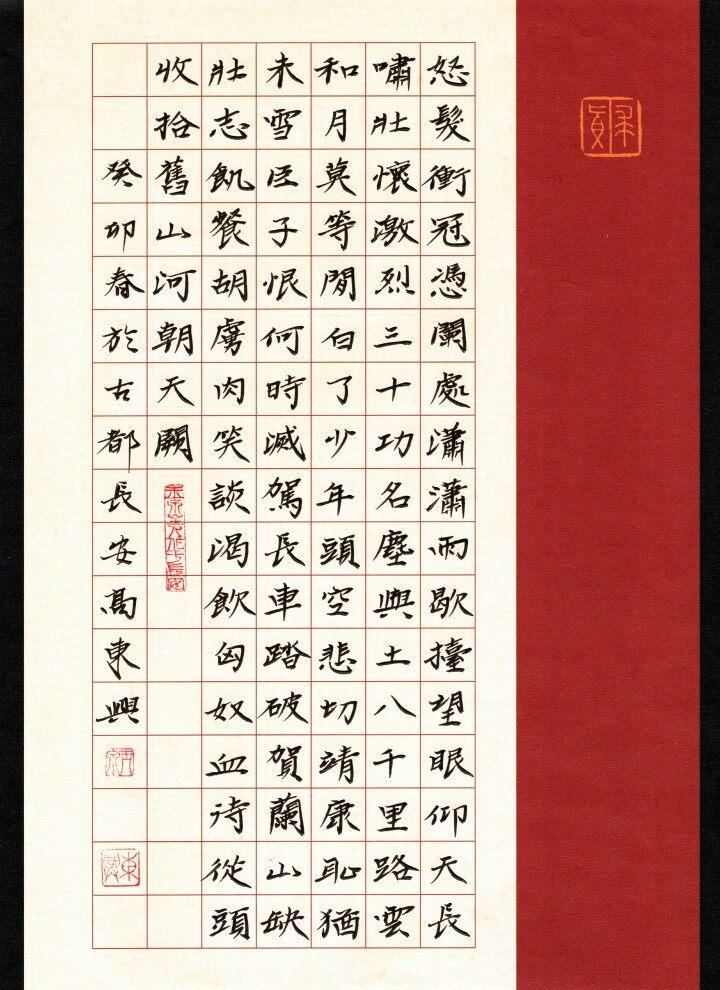 怒髮衝冠憑闌處瀟瀟雨歇擡望眼仰天長
嘯壯懷激烈三十功名塵與土八千里路雲
和月莫等閒白了少年頭空悲切靖康恥猶
未雪臣子恨何時滅駕長車踏破賀蘭山缺
壯志飢餐胡虜肉笑談渴飲匈奴血待從頭
收拾舊山河朝天闕
癸卯春於古都長安高東興